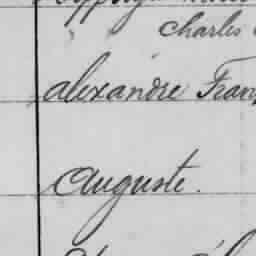 Charles
alexandre Fran
Auguste.